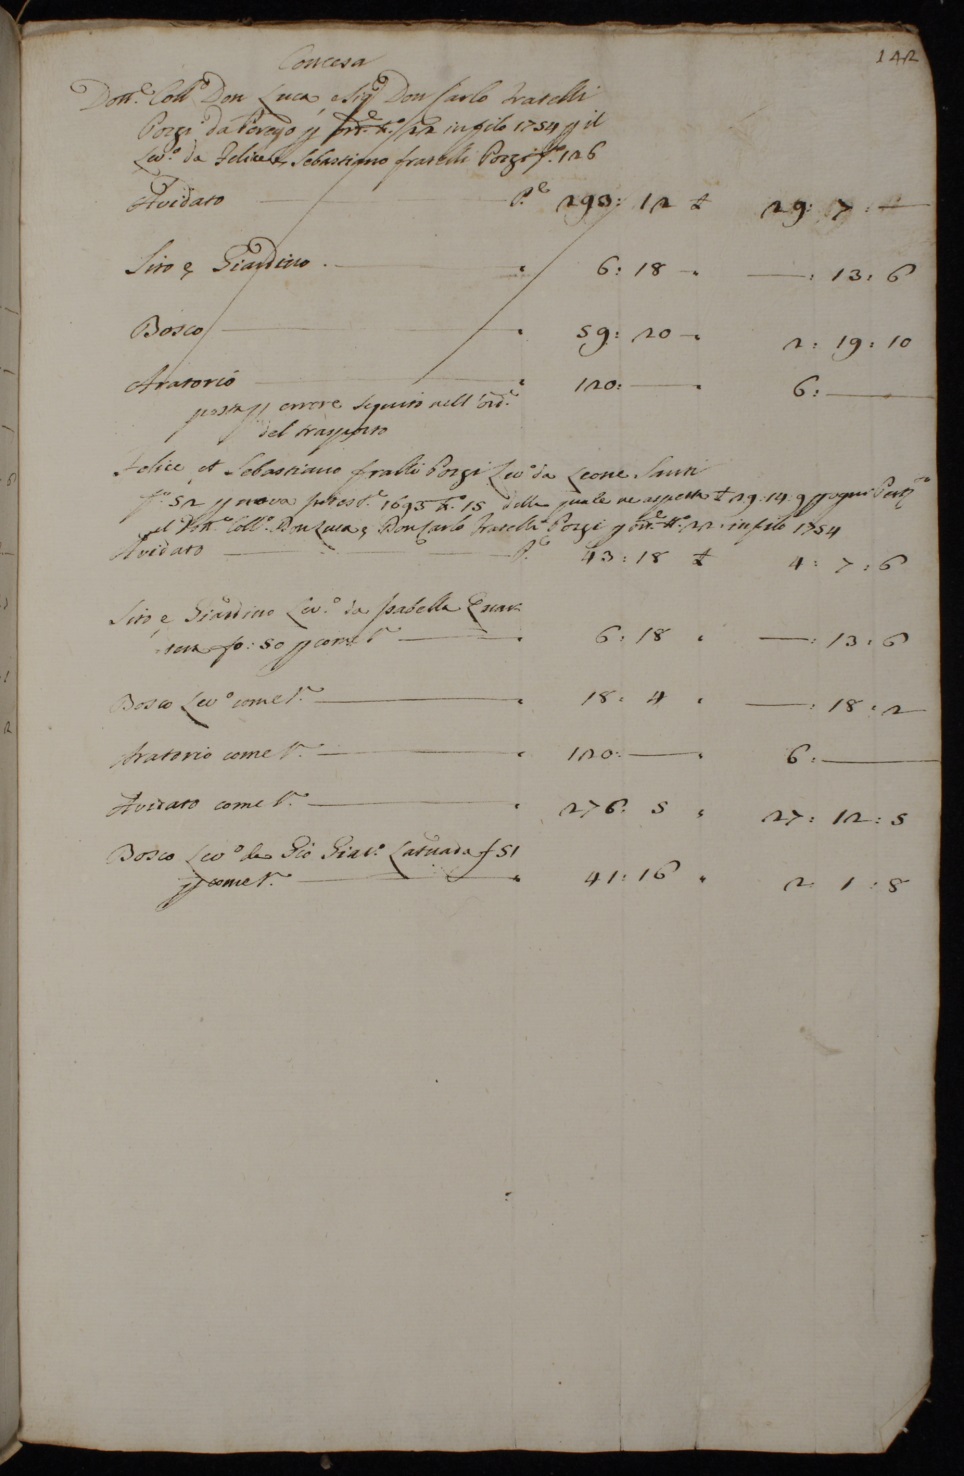 142
Concesa
Dott.e Coll.o Don Luca, e Sig.r Don Carlo fratelli
Pozzi da p ord.e N.o 22 in filo 1754 p il
Lev.o da Felice, e Sebastiano fratelli Pozzi f.o 126
Avidato P.e 293: 12 £ 29: 7: —
Sito e Giardino 6: 18 — —: 13: 6
Bosco 59: 20 — 2: 19: 10
Aratorio 120: — 6: —
posta p errore seguito nell'ord.e
del trasporto
Felice et Sebastiano fratelli Pozzi Lev.o da Leone Santi
f.o 52 p nova 1693 N.o 15 della quale ne aspetta £ 29. 14. 9 p ogni Pert.e
il Dott.e Coll.o Don Luca, e Don Carlo fratelli Pozzi p ord.e N.o 22 in filo 1754
Avidato P.e 43: 18 £ 4: 7: 6
Sito e Giardino Lev.o da Isabella
fo: 50 p come s.a 6: 18 —: 13: 6
Bosco Lev.o come s.a 18: 4 —: 18: 2
Aratorio come s.a 120: — 6: —
Avidato come s.a 276: 5 27: 12: 5
Bosco Lev.o da Gio Latuada f 51
p come s.a 41: 16 2: 1: 8